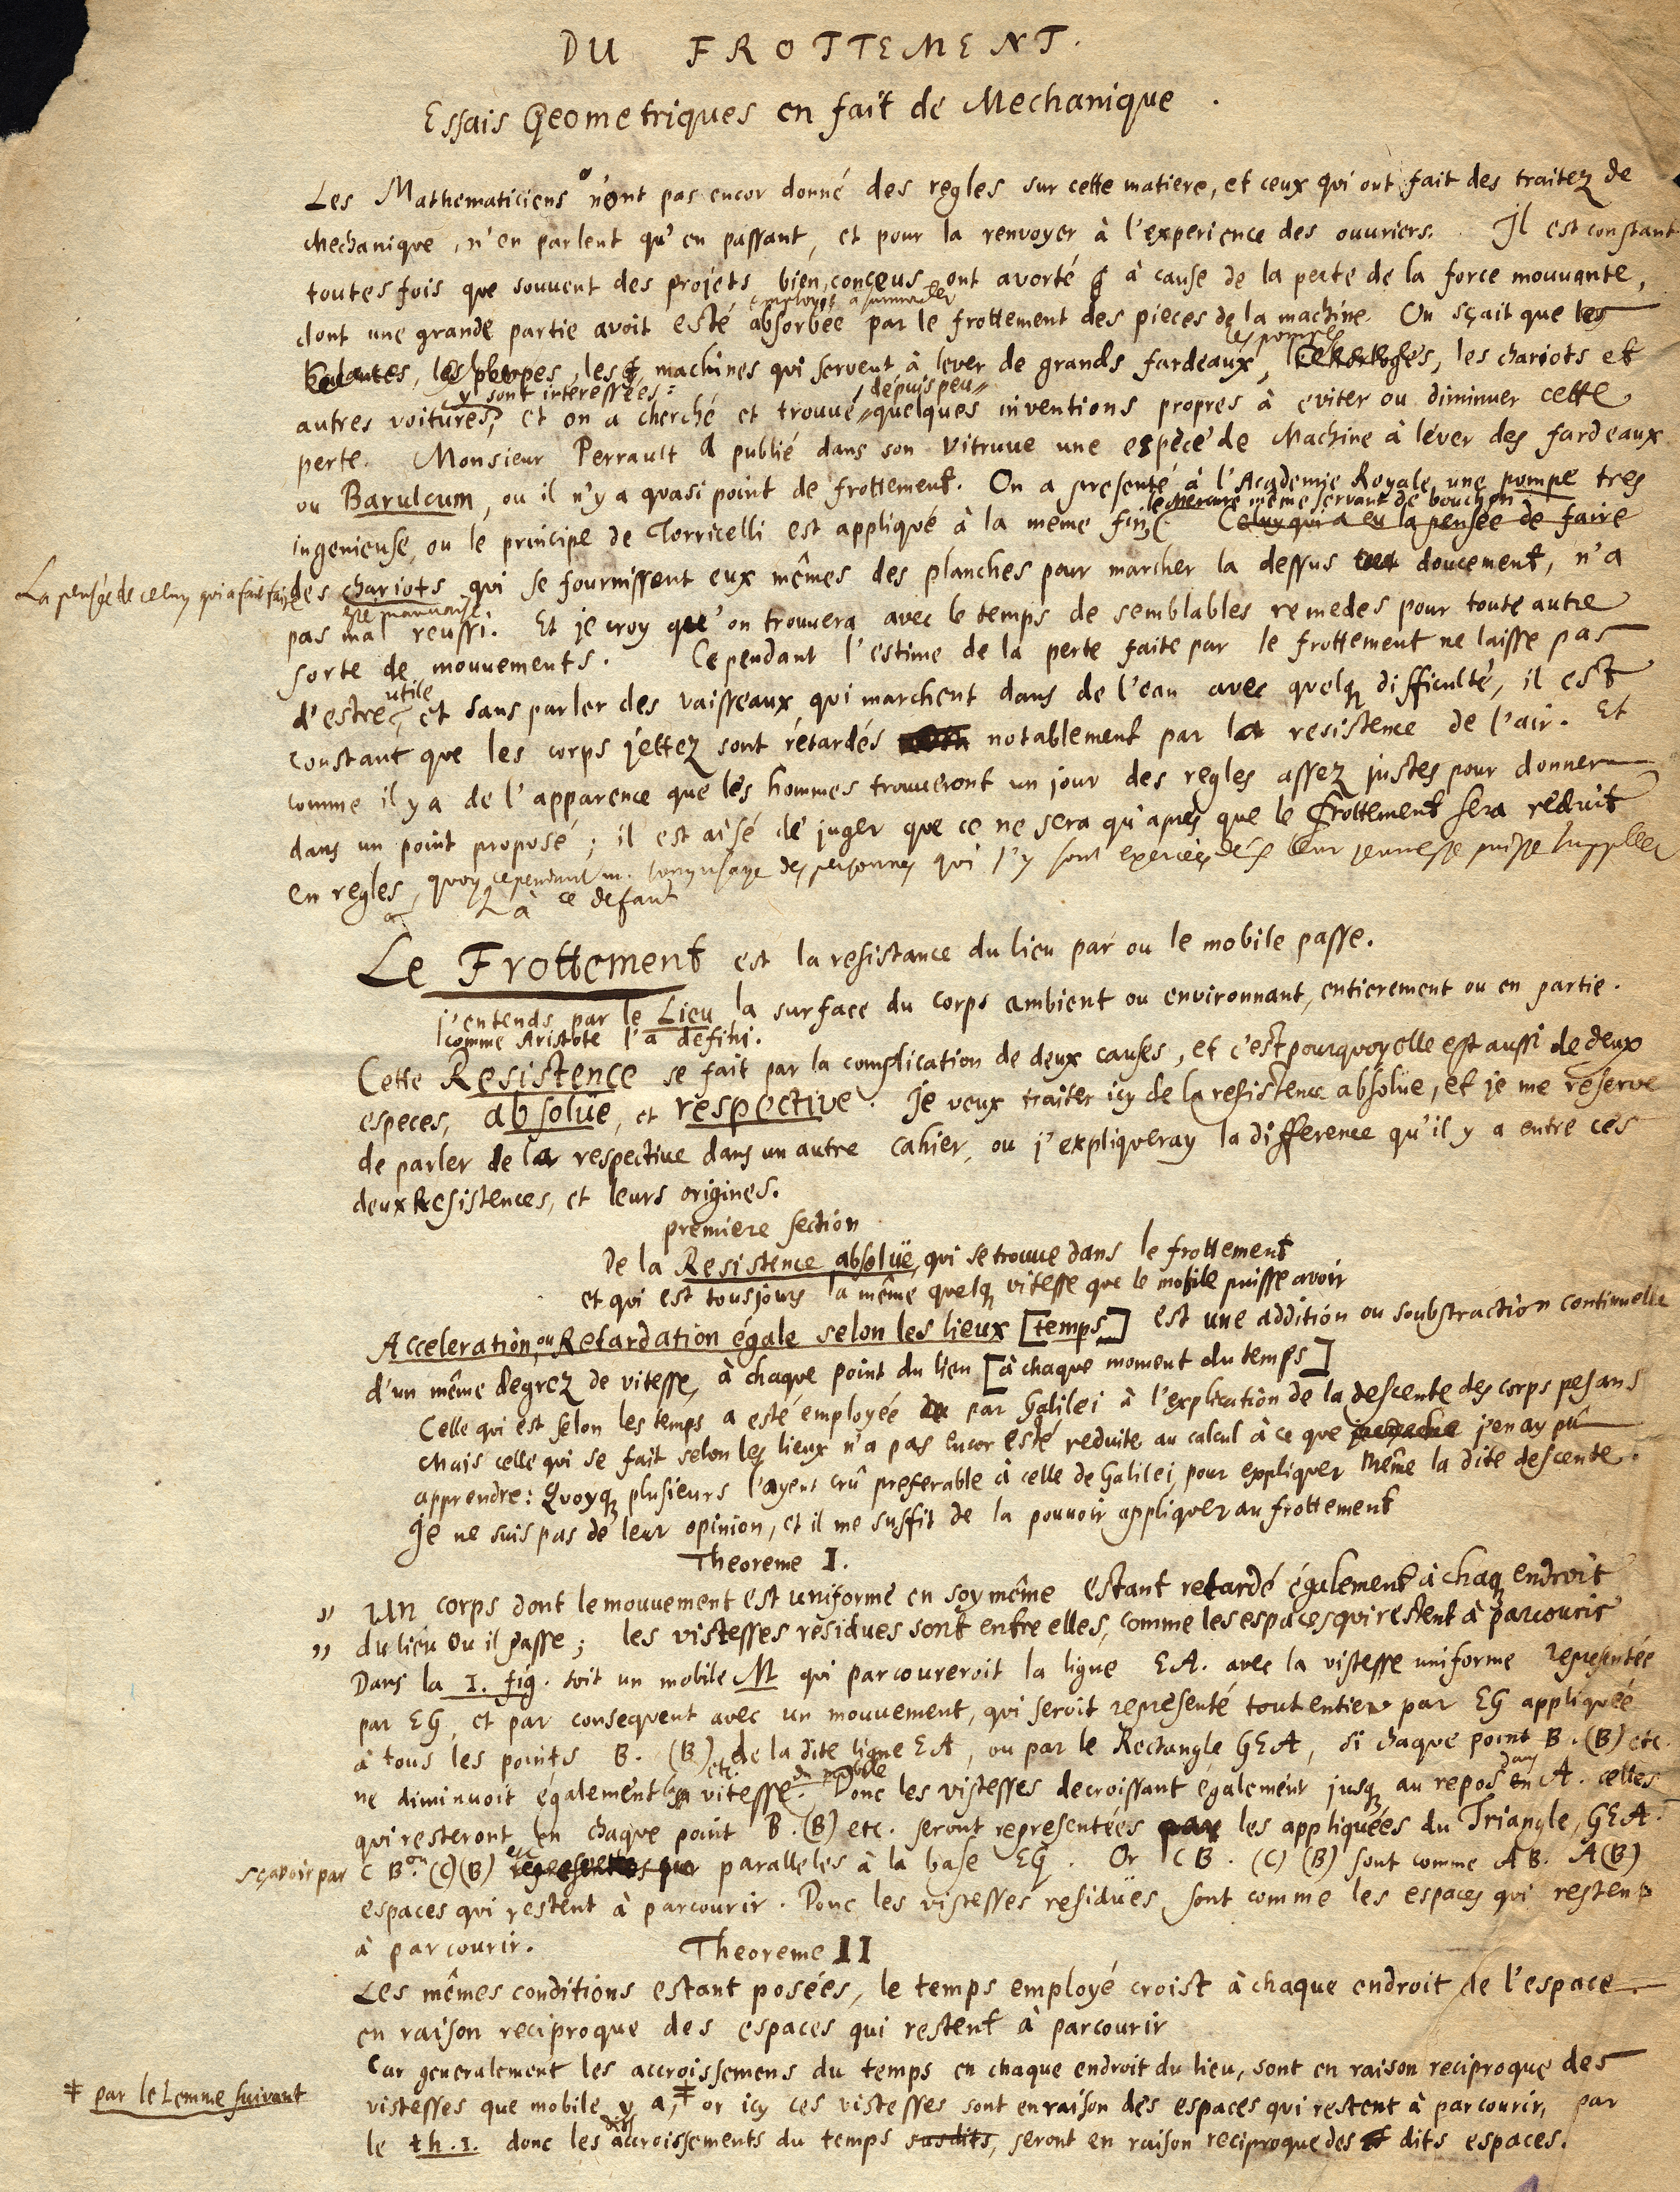 DU FROTTEMENT.
Essais Geometriques en fait de Mechanique.
Les Mathematiciens n'ont pas encor donné des regles sur cette matiere, et ceux qui ont fait des traitez de
Mechanique, n'en parlent qu'en passant, et pour la renvoyer à l'experience des ouvriers. Il est constant
toutesfois que souvent des projets bien conçeus ont avorté à cause de la perte de la force mouvante,
employée à surmonter
dont une grande partie avoit esté absorbée par le frottement des pieces de la machine. On sçait que les
les pompes
les machines qui servent à lever de grands fardeaux, les chariots et
y sont interessées: depuis peu
autres voitures, et on a cherché et trouvé quelques inventions propres à eviter ou diminuer cette
perte. Monsieur Perrault a publié dans son Vitruve une espèce de Machine à léver des fardeaux
ou Barulcum, ou il n'y a quasi point de frottement. On a presenté à l'Academie Royale une pompe tres
le mercure même servant de bouchon
ingenieuse, ou le principe de Torricelli est appliqué à la même fin. Celuy qui a eu la pensée de faire
La pensée de celuy qui a fait faire
des chariots qui se fournissent eux mêmes des planches pour marcher la dessus doucement, n'a
pas mal reussi. Et je croy qu'on trouvera avec le temps de semblables remedes pour toute autre
sorte de mouvements. Cependant l'estime de la perte faite par le frottement ne laisse pas
utile
d'estre, et sans parler des vaisseaux qui marchent dans de l'eau avec quelq difficulté, il est
constant que les corps jettez sont rétardés notablement par la resistence de l'air. Et
comme il y a de l'apparence que les hommes trouveront un jour des regles assez justes pour donner
dans un point proposé; il est aisé de juger que ce ne sera qu'aprés que le frottement sera reduit
en regles, quoyque cependant un long usage des personnes qui s'y sont exercées dés leur jeunesse puisse suppleer
à ce defaut
Le Frottement est la resistance du lieu par ou le mobile passe.
j'entends par le Lieu la surface du corps ambient ou environnant, entierement ou en partie.
comme Aristote l'a defini.
Cette Resistence se fait par la complication de deux causes, et c'est pourquoy elle est aussi de deux
especes, absolüe, et respective. Je veux traiter icy de la resistence absolüe, et je me reserve
de parler de la respective dans un autre cahier, ou j'expliqueray la difference qu'il y a entre ces
deux Resistences, et leurs origines.
premiere section
De la Resistence absolüe, qui se trouve dans le frottement
et qui est tousjours la même quelq vitesse que le mobile puisse avoir
Acceleration, ou Retardation égale selon les lieux [temps] est une addition ou soubstraction continuelle
d'un même degrez de vitesse, à chaque point du lieu [à chaque moment du temps]
Celle qui est selon les temps a esté employée par Galilei à l'explication de la descente des corps pesans
Mais celle qui se fait selon les lieux n'a pas encor esté reduite au calcul à ce que j'en ay pû
apprendre: Quoyq plusieurs l'ayent crû preferable à celle de Galilei, pour expliquer même la dite descente.
Je ne suis pas de leur opinion, et il me suffit de la pouvoir appliquer au frottement
Theoreme I.
" Un corps dont le mouvement est uniforme en soy même estant retardé également à chaq endroit
" du lieu ou il passe; les vistesses résidues sont entre elles, comme les espaces qui restent à parcourir
Dans la 1. fig. soit un mobile M qui parcoureroit la ligne EA. avec la vistesse uniforme representée
par EG, et par consequent avec un mouvement, qui seroit representé tout entier par EG appliquée
à tous les points B. (B) etc. de la dite ligne EA, ou par le Rectangle GEA, si chaque point B. (B) etc.
du mobile
ne diminuoit également la vitesse. Donc les vistesses decroissant également jusq au repos en A. celles
qui resteront en chaque point B. (B) etc. seront representées par les appliquées du Triangle, GEA.
sçavoir par CB. ou (C)(B) etc. paralleles à la base EG. Or CB. (C)(B) sont comme AB. A(B)
espaces qui restent à parcourir. Donc les vistesses residües sont comme les espaces qui restent
à parcourir.
Theoreme II
Les mêmes conditions estant posées, le temps employé croist à chaque endroit de l'espace
en raison reciproque des espaces qui restent à parcourir
Car generalement les accroissemens du temps en chaque endroit du lieu, sont en raison reciproque des
‡ par le Lemme suivant
vistesses que mobile y a,‡ or icy ces vistesses sont en raison des espaces qui restent à parcourir, par
le th. 1. donc les accroissements du temps susdits, seront en raison reciproque des dits espaces.